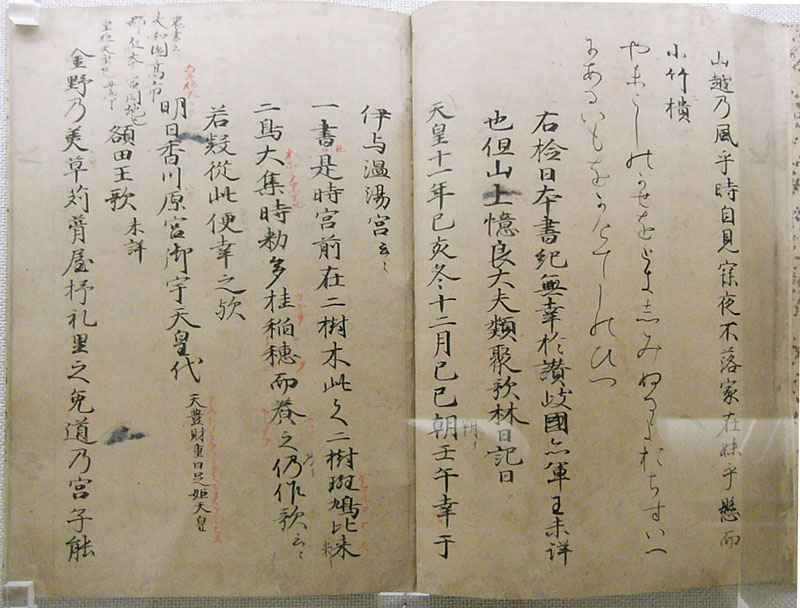 山越乃風乎時自見寐夜不落家在妹乎懸而
小竹櫃
やまこしのかせをときしみぬるよおちすいへ
にあるいもをかけてしのひつ
右檢日本書紀無幸於讃岐國亦軍王未詳
也但山上憶良大夫類聚歌林曰記曰
天皇十一年己亥冬十二月己巳朔壬午幸于
伊与温湯宮云々
一書是時宮前在二樹木此之二樹斑鳩比米
二鳥大集時勅多桂稲穂而養之仍作歌云々
若疑從此便幸之歟
明日香川原宮御宇天皇代 天豊財重日足姫天皇
額田王歌 未詳
金野乃美草苅葺屋杼礼里之兎道乃宮子能